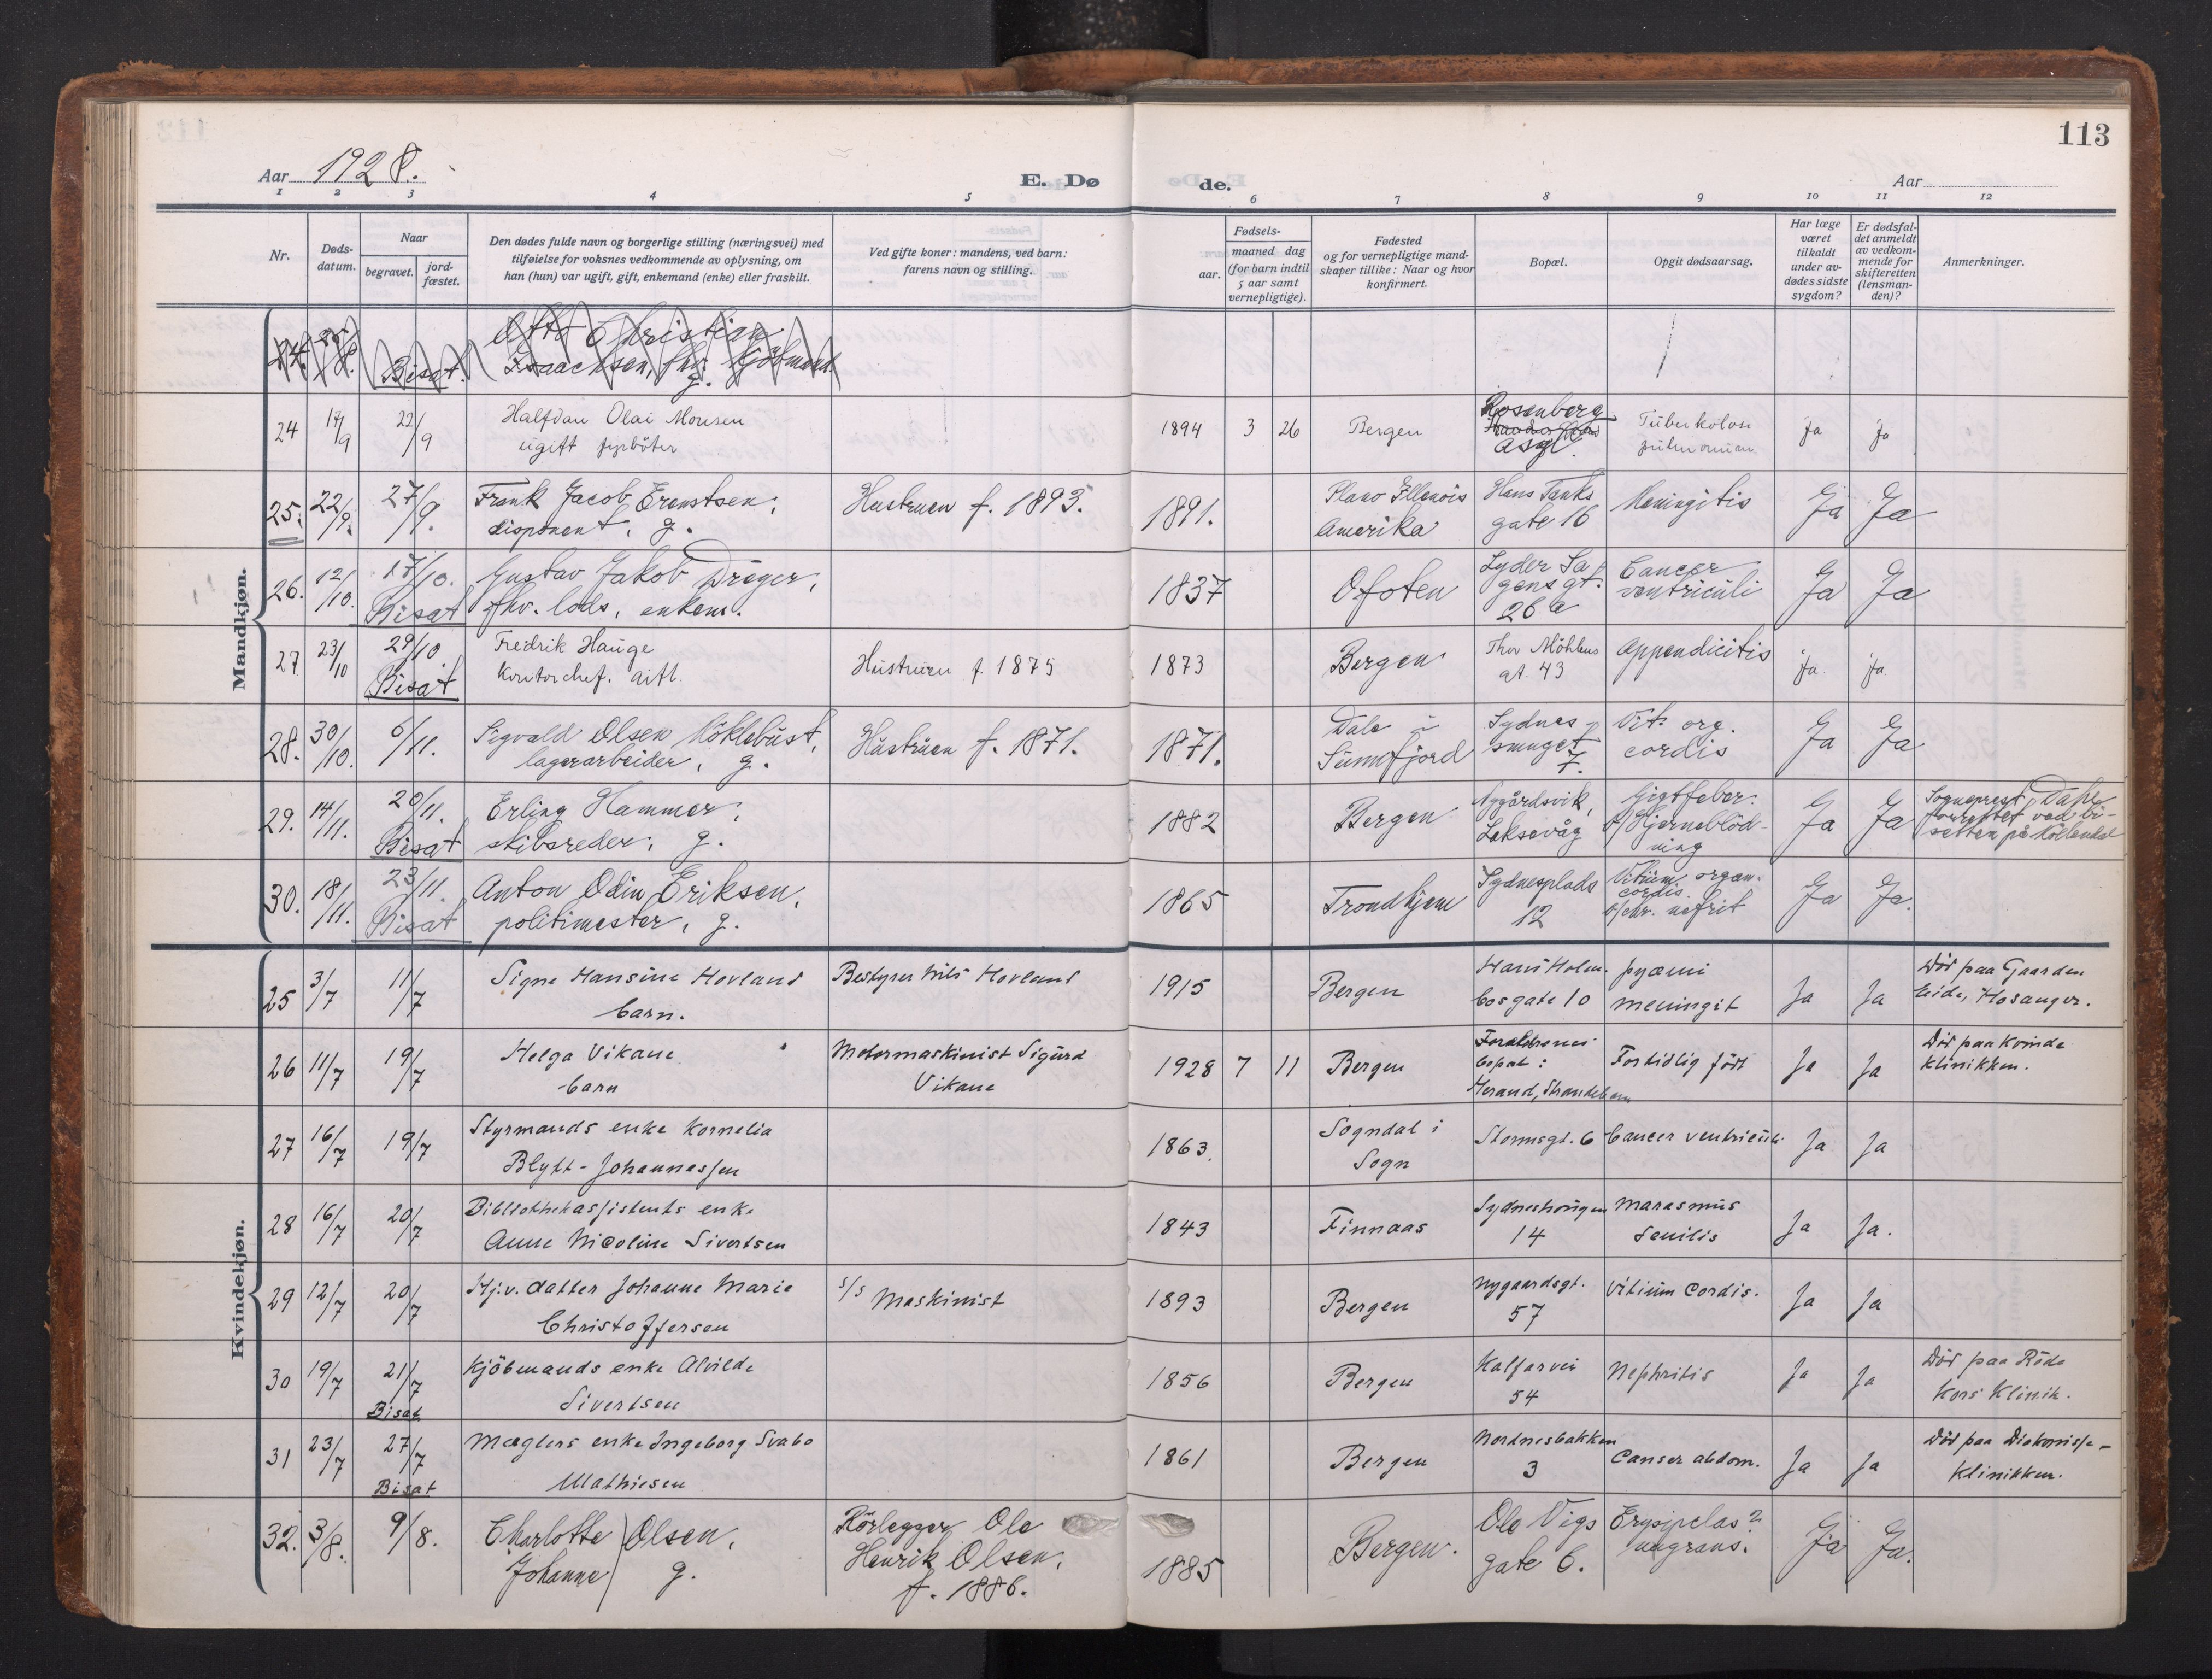 113
Aar 1928.
E. Dø de.
Aar
1 2 3 4 5 6 7 8 9 10 11 12
Nr.
Døds-
datum.
Naar
begravet.
jord-
fæstet.
Den dødes fulde navn og borgerlige stilling (næringsvei) med
tilføielse for voksnes vedkommende av oplysning, om
han (hun) var ugift, gift, enkemand (enke) eller fraskilt.
Ved gifte koner: mandens, ved barn:
farens navn og stilling.
Fødsels-
aar.
maaned dag
(for barn indtil
5 aar samt
vernepligtige).
Fødested
og for vernepligtige mand-
skaper tillike: Naar og hvor
konfirmert.
Bopæl.
Opgit dødsaarsag.
Har læge
været
tilkaldt
under av-
dødes sidste
sygdom?
Er dødsfal-
det anmeldt
av vedkom-
mende for
skifteretten
(lensman-
den)?
Anmerkninger.
Mandkjøn.
24. 25/8. Bisat. Otto Christian
Isaachsen, fhv. kjøbmand.
g.
24 17/9 22/9 Halfdan Olai Monsen
ugift fyrbøter
1894 3 26 Bergen Rosenberg
asyl.
Tuberkolose
pulmonum
ja ja
25. 22/9. 27/9. Frank Jacob Ernstsen,
disponent, g.
Hustruen f. 1893. 1891. Plano Illenois
Amerika
Hans Tanks
gate 16
Meningitis Ja Ja
26. 12/10. 17/10. Bisat Gustav Jakob Dreyer,
fhv. lods, enkem.
1837 Ofoten Lyder Sa-
gens gt.
26 a
Cancer
ventriculi
Ja Ja
27 23/10 29/10 Bisat Fredrik Hauge
Kontorchef. gift.
Hustruen f. 1875 1873 Bergen Thor Möhlens
gt. 43
Appendicitis ja. ja.
28. 30/10. 6/11. Sigvald Olsen Köklebust,
lagerarbeider, g.
Hustruen f. 1871. 1871. Dale i
Sunnfjord
Sydnes-
smuget
7.
Vit. org.
cordis
Ja Ja
29. 14/11. 20/11. Bisat Erling Hammer,
skibsreder, g.
1882 Bergen Nygårdsvik,
Laksevåg
Gigtfeber.
Hjerneblöd-
ning
Ja Ja Sogneprest Dahl
forrettet ved bi-
settn. på Möllendal
30. 18/11. 23/11. Bisat Anton Odin Eriksen,
politimester, g.
1865 Trondhjem Sydnesplads
12
Vitium organ.
cordis
chr. nefrit
Ja Ja.
Kvindekjøn.
25 3/7 11/7 Signe Hansine Hovland
barn.
Bestyrer Nils Hovland 1915 Bergen Hans Holm-
boes gate 10
pyæmi
meningit
Ja Ja Død paa Gaarden
Eide, Hosanger.
26 11/7 19/7 Helga Vikane
barn
Motormaskinist Sigurd
Vikane
1928 7 11 Bergen Forældrenes
bopæl:
Herand, Strandebarm
For tidlig født Ja Ja Død paa Kvinde
klinikken.
27 16/7 19/7 Styrmands enke Kornelia
Blytt-Johannessen
1863. Sogndal i
Sogn
Stormsgt. 6 Cancer ventriculi Ja Ja
28 16/7 20/7 Bibliothekassistents enke
Anne Nicoline Sivertsen
1843 Finnaas Sydneshaugen
14
Marasmus
Senilis
Ja Ja.
29 12/7 20/7 Hj.v. datter Johanne Marie
Christoffersen
s/s Maskinist 1893 Bergen Nygaardsgt.
57
Vitium Cordis. Ja Ja
30 19/7 21/7 Bisat Kjöbmands enke Alvilde
Sivertsen
1856 Bergen Kalfarvei
54
Nephritis Ja Ja Død paa Røde
Kors Klinik.
31 23/7 27/7 Bisat Mæglers enke Ingeborg Svabo
Mathiesen
1861 Bergen Nordnesbakken
3
Canser abdom. Ja Ja Død paa Diakonisse-
klinikken.
32. 3/8. 9/8. Charlotte Olsen,
Johanne g.
Rörlegger Ole
Henrik Olsen,
f. 1886.
1885 Bergen. Ole Vigs
gate 6.
Erysipelas
migrans.
Ja Ja.